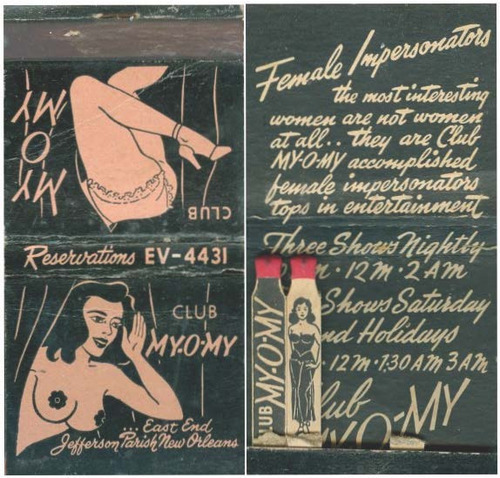 MY-O-MY
CLUB
Reservations EV-4431
CLUB
MY-O-MY
... East End
Jefferson Parish New Orleans
Female Impersonators
the most interesting
women are not women
at all.. they are Club
MY-O-MY accomplished
female impersonators
tops in entertainment
Three Shows Nightly
12 M · 2 AM
Shows Saturday
Holidays
12 M · 1:30 AM 3 AM
Club
MY-O-MY
CLUB MY-O-MY